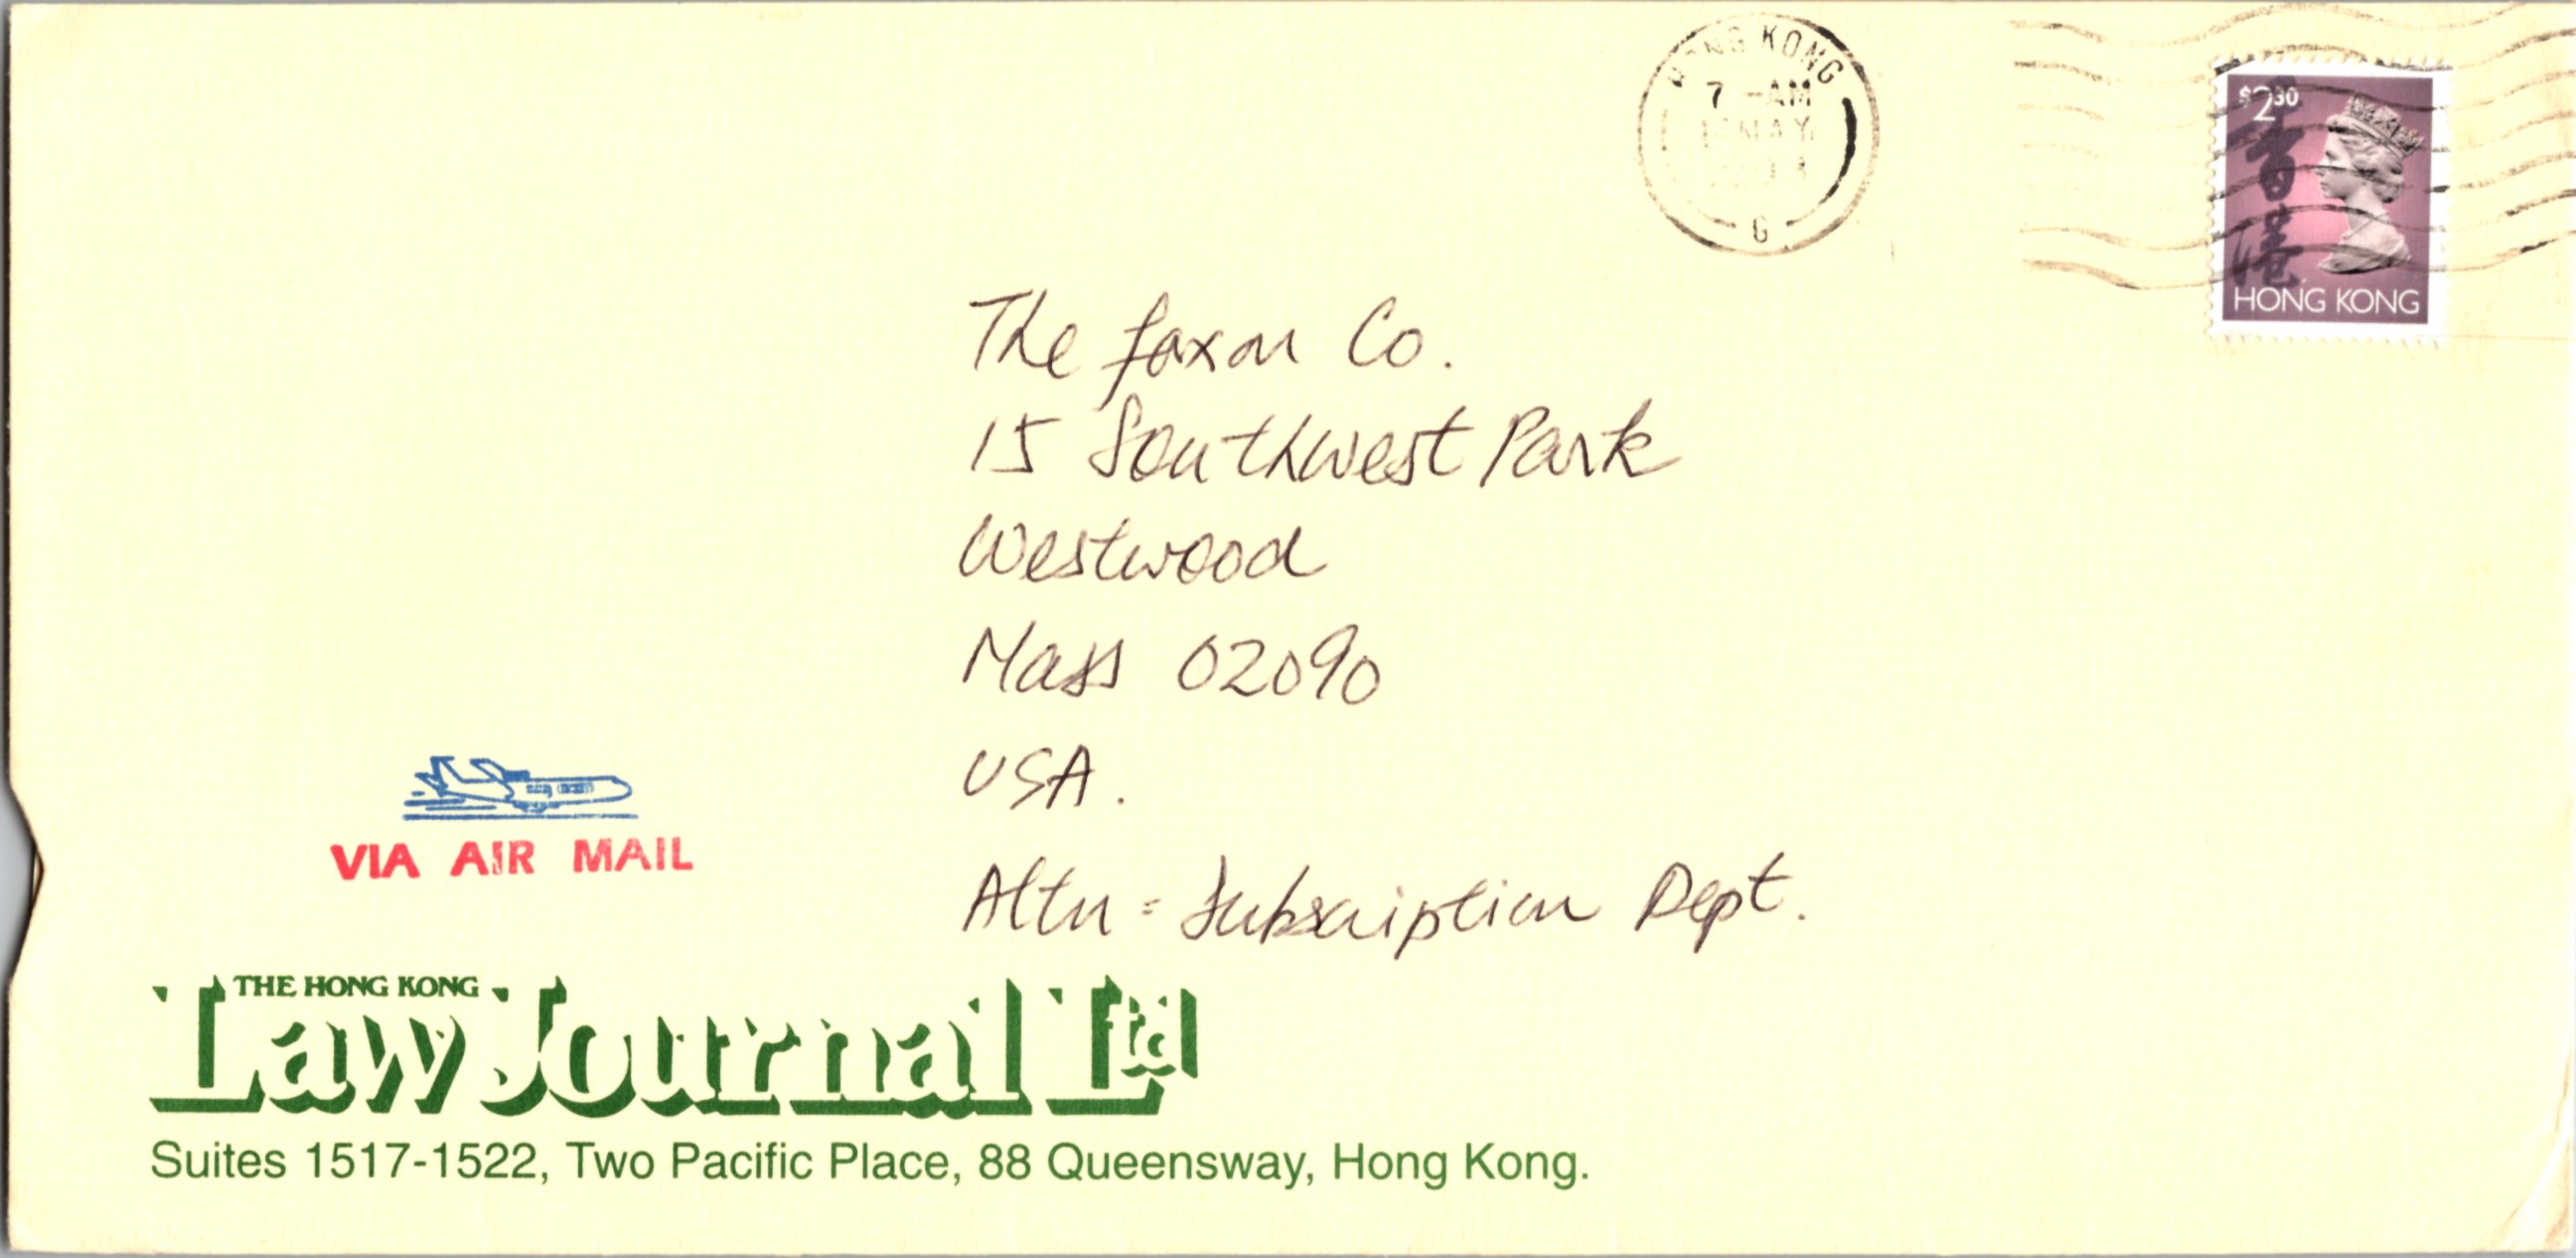 HONG KONG
7 -AM
MAY
G
$2.30
香港
HONG KONG
The Faxon Co.
15 Southwest Park
Westwood
Mass 02090
USA.
Attn = Subscription Dept.
VIA AIR MAIL
THE HONG KONG
Law Journal Ltd
Suites 1517-1522, Two Pacific Place, 88 Queensway, Hong Kong.